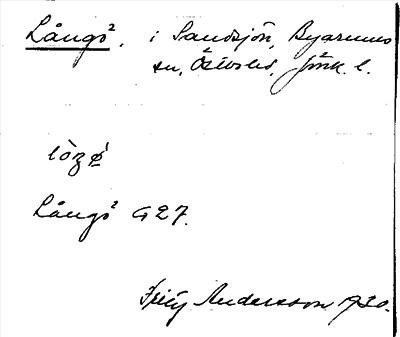 Långö, i Sandsjön, Byarums
sn, Östbo hd, Jönk. l.
Långö G27.
Fritz Andersson 1930.